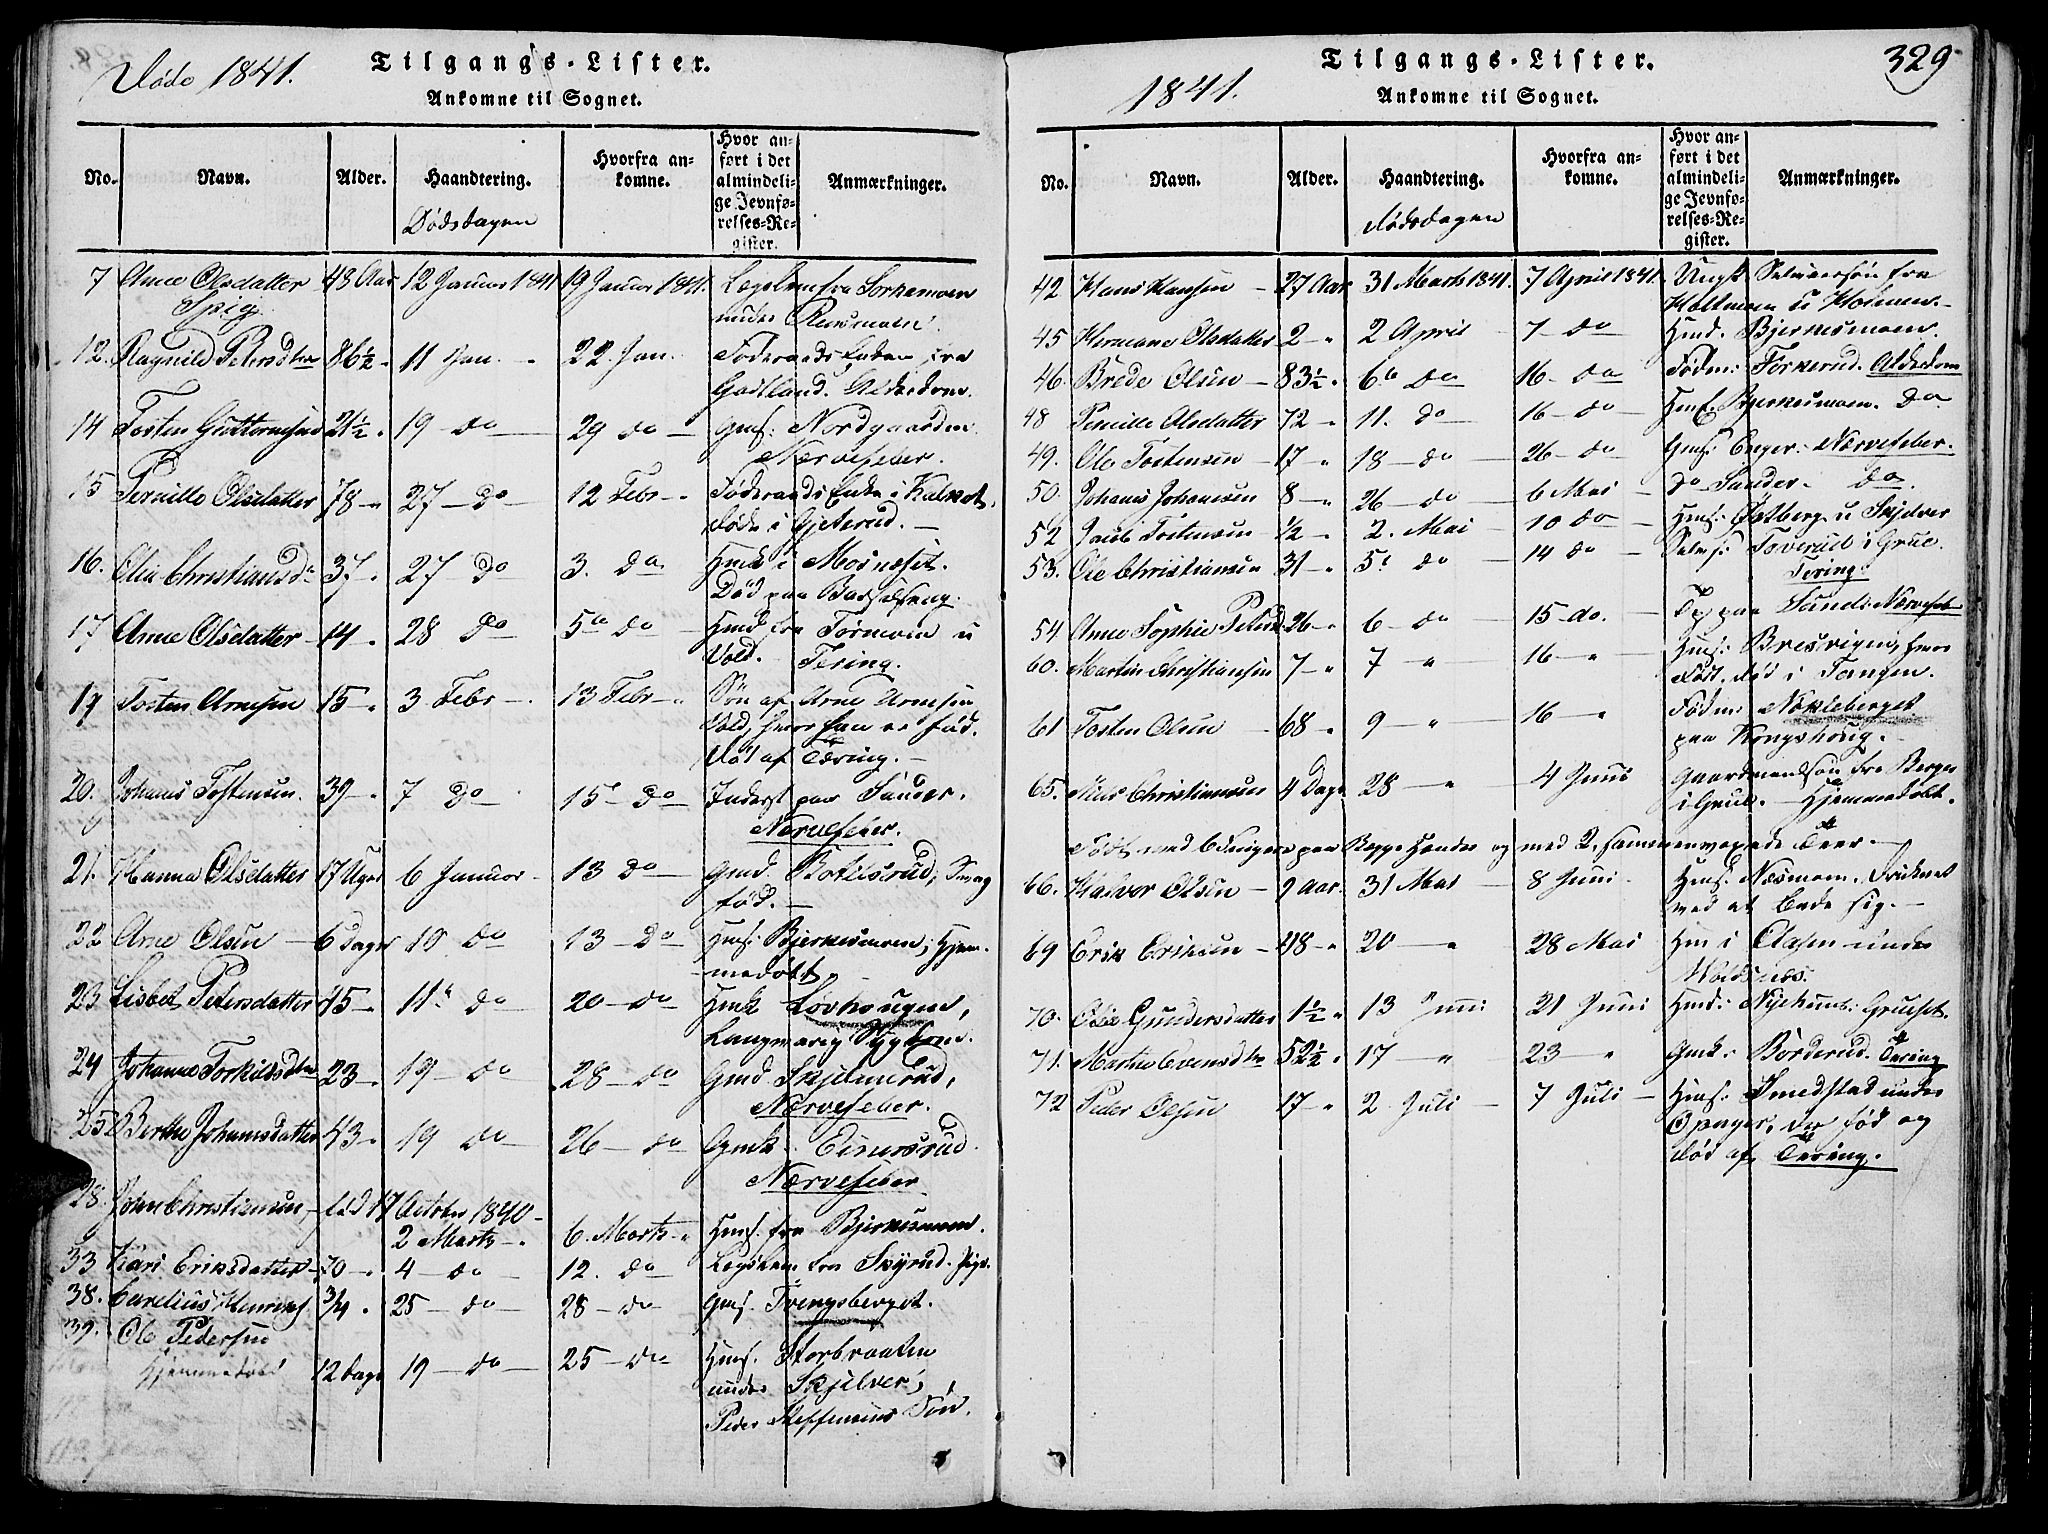 Døde 1841.
Tilgangs-Lister.
Ankomne til Sognet.
No. Navn. Alder. Haandtering. Hvorfra ankomne. Hvor anført i det almindelige Jevnførelses-Register. Anmærkninger.
Dødsdagen
7 Anne Olsdatter 48 Aar 12 Januar 1841 19 Januar 1841. Lægslem fra
Pige under
12. Ragnild Petersdtr 86½ 11 Jan. 22. Jan. Føderaads Enke fra
Godtland. Alderdom.
14 Tosten Guttormsen 21½ 19 do 29 do Gms: Nordgaarden
Nervefeber.
15 Pernille Olsdatter 78 27 do 12 Febr Føderaads Enke i
død i Gjeterud.
16. Olia Christiansdr 37 27 do 3. do Hmk i Mosneset.
Død paa Barselseng.
17 Anne Olsdatter 14 28 do 5te do Hmd fra Tørmoen u
Vold. Tering.
19 Tosten Arnesen 15 3 Febr 13 Febr Søn af Arne Arnesen
Vold, hvor han er fød.
Død af Tæring.
20. Johannes Tostensen. 39 7 do 15 do Inderst paa Sander.
Nervefeber.
21. Hanna Olsdatter 17 Uger 6 Januar 13 do Gmd Botilsrud; Svag
fød.
22 Arne Olsen 6 Dage 10 do 13 do Hms: Bjerkesmoen; Hjem-
medøbt
23 Lisbet Petersdatter 45 11te do 20 do Hmk Lovhougen,
Langvarig Sygdom.
24 Johanne Torkildsdtr 23 19 do 28 do Gmd. Skjelmerud,
Nervefeber.
25 Berthe Johannesdatter 43 19 do 26 do Gmk Einersrud.
Nervefeber
28. John Christiansen, fød 17 October 1840
2 Marts 6. Marts Hms. fra Bjerkesmoen.
33 Kari Eriksdatter 70 4 do 12. do Lægslem fra Skyrud. Pige.
38. Carelius Henrichs. ¾ 25 do 28 do Gms. Tvengsberget.
39. Ole Pedersen
Hjemmedøbt 12 Dage 19 do 25 do Hms. Storbraaten
under Skjelver,
Peder Steffensens Søn.
329
1841.
Tilgangs-Lister.
Ankomne til Sognet.
No. Navn. Alder. Haandtering. Hvorfra ankomne. Hvor anført i det almindelige Jevnførelses-Register. Anmærkninger.
Dødsdagen
42 Hans Hansen 27 Aar 31 Marts 1841. 7 April 1841. Ungk. Selveiersøn fra
Holtmoen u
45 Hermane Olsdatter 2 2 April 7 do Hmd. Bjerkesmoen.
46. Brede Olsen 83½ 6te do 16 do Fødm: Torkerud. Alderdom
48 Pernille Olsdatter 72 11. do 16 do Bjerkesmoen. do
49. Ole Tostensen 17 18 do 26 do Gms: Enger. Nervefeber.
50. Johannes Johannesen 8 26 do 6 Mai do Sander. do.
52 Jacob Tostensen ½ 2. Mai 10 do Hms: Østberg u Skjelver
53. Ole Christiansen 31 5te do 14 do Selvs: Toverud i Grue.
Tering.
54 Anne Sophie Petersd. 26 6 do 15 do. Tp paa Sand: Nervefeb
60. Martin Christiansen 7 7 " 16 " Hms: Bresvigen, hvor
født, død i Tangen.
61 Tosten Olsen 68 9 " 16 " Fødm: Nøkleberget
paa Kongshoug.
65. Nils Christiansen 4 Dage 28 " 4 Juni Gaardmandsøn fra Berger
i Grue. Hjemmedøbt.
Født med 6 Fingre paa Begge Hænder og med 2 sammenvoxede Tæer.
66. Halvor Olsen 9 Aar. 31 Mai 8 Juni Hms. Næsmoen. Druknet
ved at bade sig.
69 Erik Eriksen 48 20 " 28 Mai Hm i Aasen under
70. Olia Gundersdatter 1½ 13 Juni 21 Juni Hmd: Grueset.
71. Marthe Evensdtr 52½ 17 " 23 " Gmk: Børderud. Tæring
72 Peder Olsen 17 2 Juli 7 Juli Hms: Smedstad under
Opager, der fød og
død af Tæring.